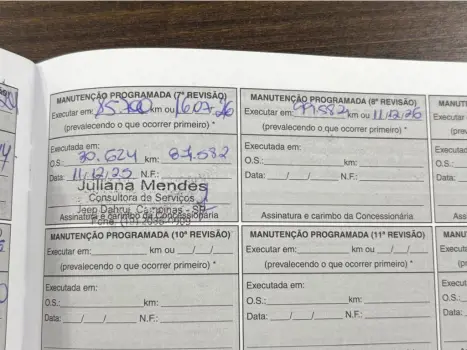 MANUTENÇÃO PROGRAMADA (7ª REVISÃO)
Executar em: 85.700 km ou 16.07.26
(prevalecendo o que ocorrer primeiro) *
Executada em:
O.S.: 30.624 km: 87.582
Data: 11/12/25 N.F.:
Juliana Mendes
Consultora de Serviços
Jeep Dahruj Campinas - SP
Assinatura e carimbo da Concessionária
MANUTENÇÃO PROGRAMADA (8ª REVISÃO)
Executar em: 99.582 km ou 11/12/26
(prevalecendo o que ocorrer primeiro) *
Executada em:
O.S.: km:
Data: / / N.F.:
Assinatura e carimbo da Concessionária
MANUTENÇÃO PROGRAMADA (10ª REVISÃO)
Executar em: km ou / /
(prevalecendo o que ocorrer primeiro) *
Executada em:
O.S.: km:
Data: / / N.F.:
MANUTENÇÃO PROGRAMADA (11ª REVISÃO)
Executar em: km ou / /
(prevalecendo o que ocorrer primeiro) *
Executada em:
O.S.: km:
Data: / / N.F.: